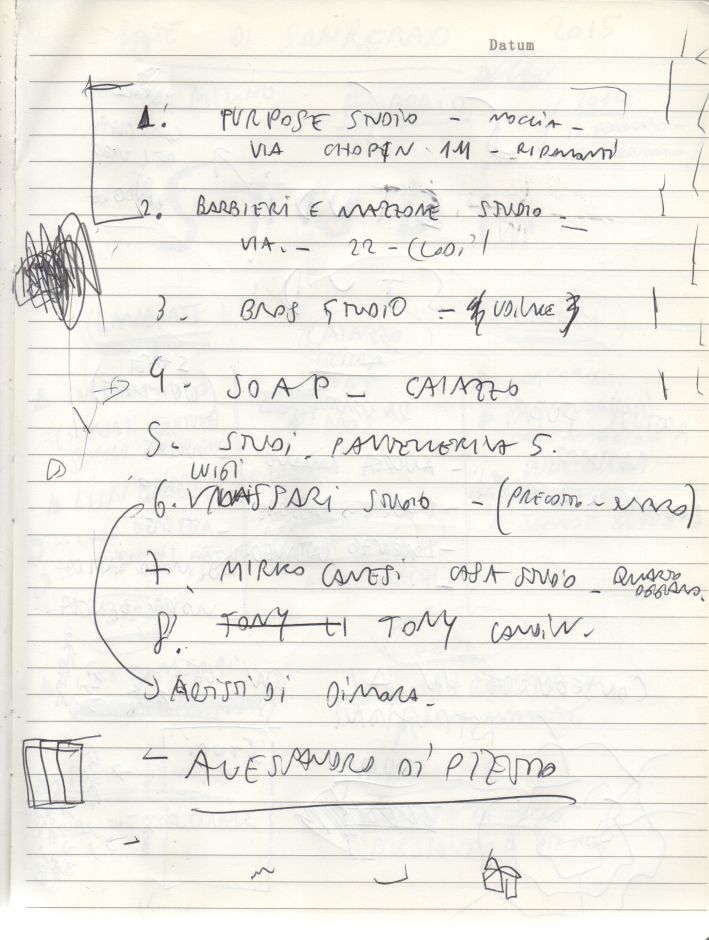 Datum
1. PURPOSE STUDIO - NOCCIA -
VIA CHOPIN 111 - RIPAMONTI
2. BARBIERI E MAZZONE STUDIO -
VIA. - 22 - (LODI')
3. BROS STUDIO - {UDINE}
4 - SOAP - CAIAZZO
5. STUDI PANTELLERIA 5.
LUIGI
6. MASSARI STUDIO - (PRECOTTO - NAMO)
7. MIRKO CANESI - CASA STUDIO - QUARTO OGGIARO.
8. TONY TONY CANDIN.
ARTISTI DI DIMORA.
- ALESSANDRO DI PIETRO